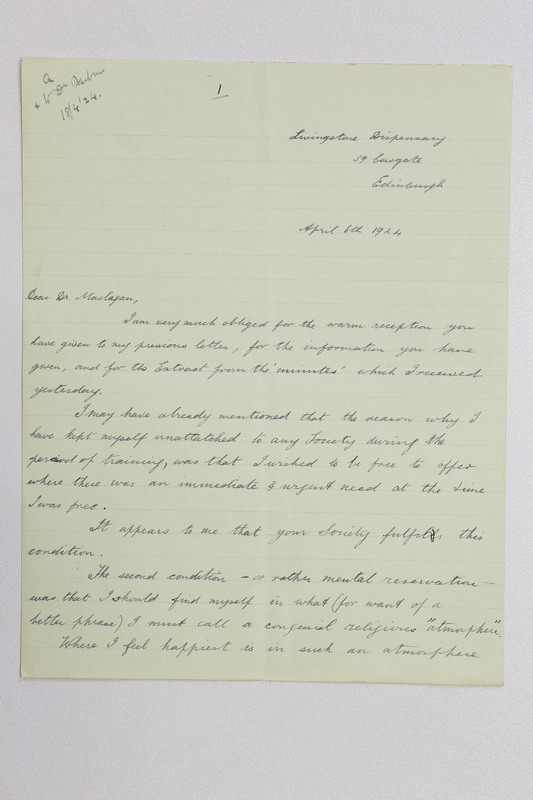 a
1
18/4/24.
Livingstone Dispensary
39 Cowgate
Edinburgh.
April 6th 1924
Dear Dr Maclagan,
I am very much obliged for the warm reception you
have given to my previous letter, for the information you have
given, and for the Extract from the 'minutes' which I received
yesterday.
I may have already mentioned that the reason why I
have kept myself unattatched to any Society during the
period of training, was that I wished to be free to offer
where there was an immediate & urgent need at the time
I was free.
It appears to me that your Society fulfils this
condition.
The second condition - or rather mental reservation -
was that I should find myself in what (for want of a
better phrase) I must call a congenial religious "atmosphere".
Where I feel happiest is in such an atmosphere